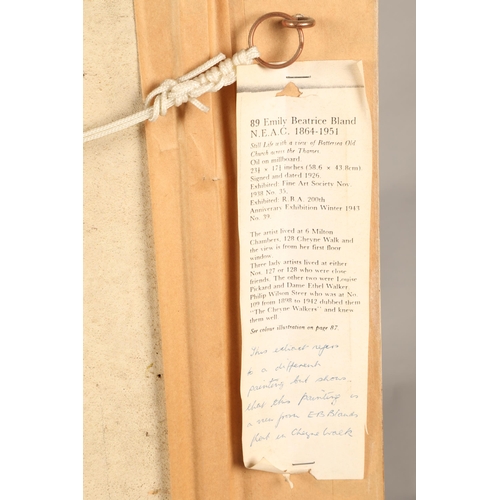 89 Emily Beatrice Bland
N.E.A.C. 1864-1951
Still Life with a view of Battersea Old
Church across the Thames
Oil on millboard.
23⅛ × 17¼ inches (58.6 × 43.8cm)
Signed and dated 1926.
Exhibited: Fine Art Society Nov.
1938 No. 35.
Exhibited: R.B.A. 200th
Anniversary Exhibition Winter 1943
No. 39.
The artist lived at 6 Milton
Chambers, 128 Cheyne Walk and
the view is from her first floor
window.
Three lady artists lived at either
Nos. 127 or 128 who were close
friends. The other two were Louise
Pickard and Dame Ethel Walker.
Philip Wilson Steer who was at No.
109 from 1898 to 1942 dubbed them
"The Cheyne Walkers" and knew
them well.
See colour illustration on page 87.
This extract refers
to a different
painting but shows
that this painting is
a view from E B Bland's
flat in Cheyne Walk